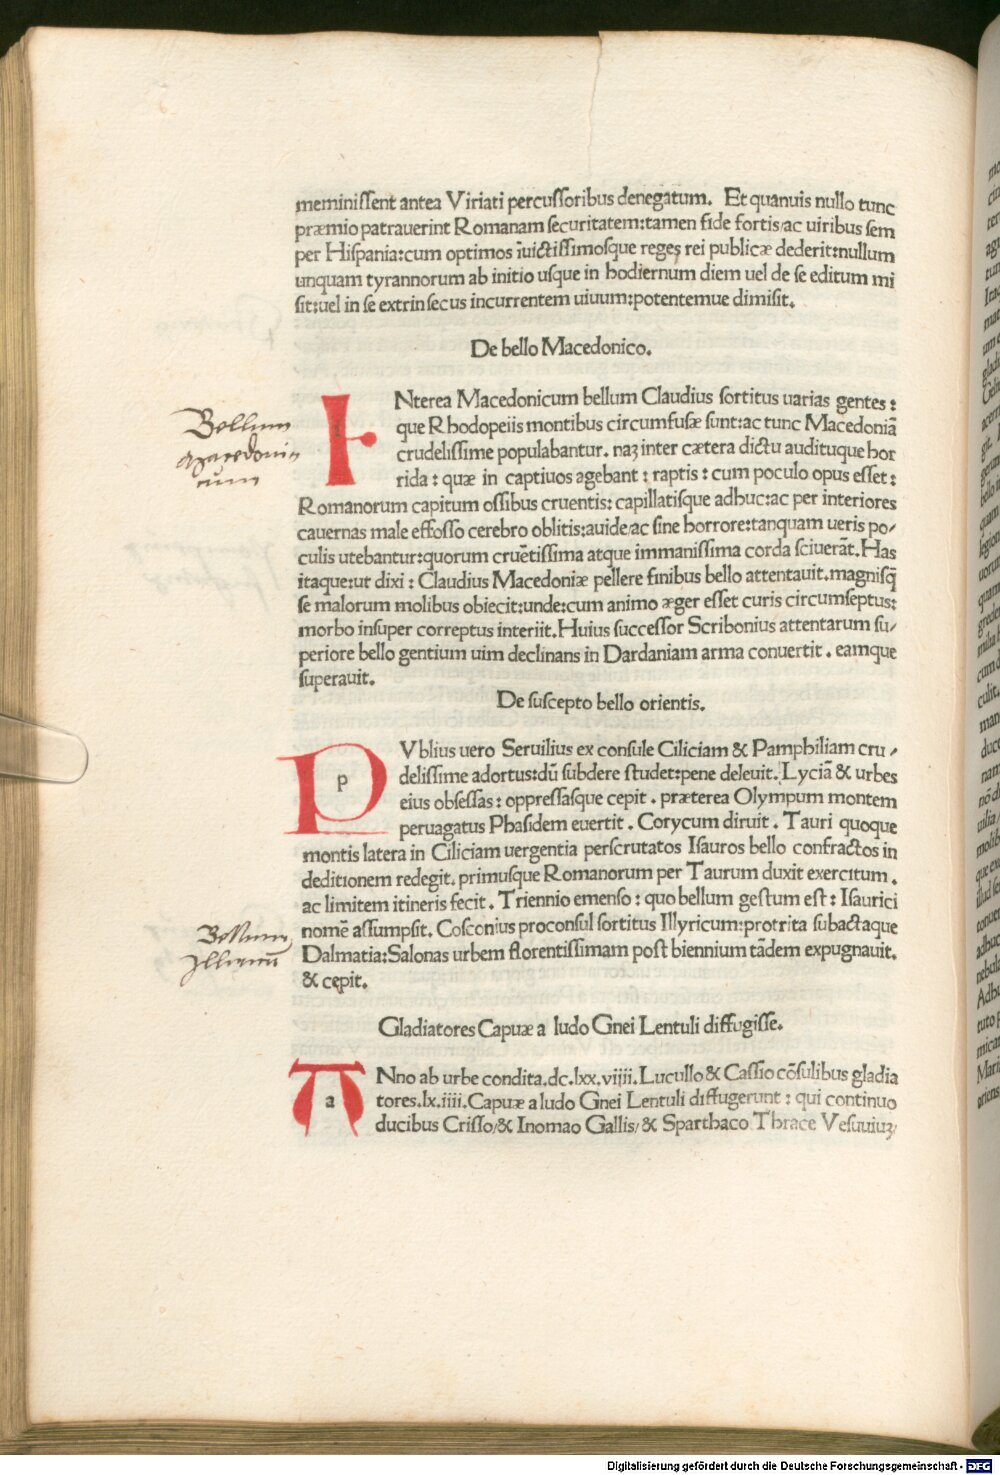 meminiſſent antea Viriati percuſſoribus denegatum. Et quanuis nullo tunc
præmio patrauerint Romanam ſecuritatem:tamen fide fortis/ac uiribus ſem
per Hiſpania:cum optimos īuictiſſimoſque reges rei publicæ dederit:nullum
unquam tyrannorum ab initio uſque in hodiernum diem uel de ſe editum mi
ſit:uel in ſe extrinſecus incurrentem uiuum:potentemue dimiſit.
De bello Macedonico.
INterea Macedonicum bellum Claudius ſortitus uarias gentes:
que Rhodopeiis montibus circumfuſæ ſunt:ac tunc Macedoniā
crudeliſſime populabantur. naꝫ inter cætera dictu audituque hor
rida: quæ in captiuos agebant: raptis: cum poculo opus eſſet:
Romanorum capitum oſſibus cruentis: capillatiſque adhuc:ac per interiores
cauernas male effoſſo cerebro oblitis:auide/ac ſine horrore:tanquam ueris po/
culis utebantur:quorum cruētiſſima atque immaniſſima corda ſciuerāt.Has
itaque:ut dixi: Claudius Macedoniæ pellere finibus bello attentauit.magniſq̄
ſe malorum molibus obiecit:unde:cum animo æger eſſet curis circumſeptus:
morbo inſuper correptus interiit.Huius ſucceſſor Scribonius attentarum ſu/
periore bello gentium uim declinans in Dardaniam arma conuertit. eamque
ſuperauit.
Bellum
Macedonicum
De ſuſcepto bello orientis.
PVblius uero Seruilius ex conſule Ciliciam & Pamphiliam cru/
deliſſime adortus:dū ſubdere ſtudet:pene deleuit.Lyciā & urbes
eius obſeſſas: oppreſſaſque cepit. præterea Olympum montem
peruagatus Phaſidem euertit. Corycum diruit. Tauri quoque
montis latera in Ciliciam uergentia perſcrutatos Iſauros bello confractos in
deditionem redegit. primuſque Romanorum per Taurum duxit exercitum.
ac limitem itineris fecit. Triennio emenſo: quo bellum geſtum eſt: Iſaurici
nomē aſſumpſit. Coſconius proconſul ſortitus Illyricum:protrita ſubactaque
Dalmatia:Salonas urbem florentiſſimam poſt biennium tādem expugnauit.
& cepit.
Bellum
Illiricū
Gladiatores Capuæ a ludo Gnei Lentuli diffugiſſe.
ANno ab urbe condita.dc.lxx.viiii.Lucullo & Caſſio cōſulibus gladia
tores.lx.iiii.Capuæ a ludo Gnei Lentuli diffugerunt: qui continuo
ducibus Criſſo/& Inomao Gallis/& Sparthaco Thrace Veſuuiuꝫ/
Digitalisierung gefördert durch die Deutsche Forschungsgemeinschaft - DFG